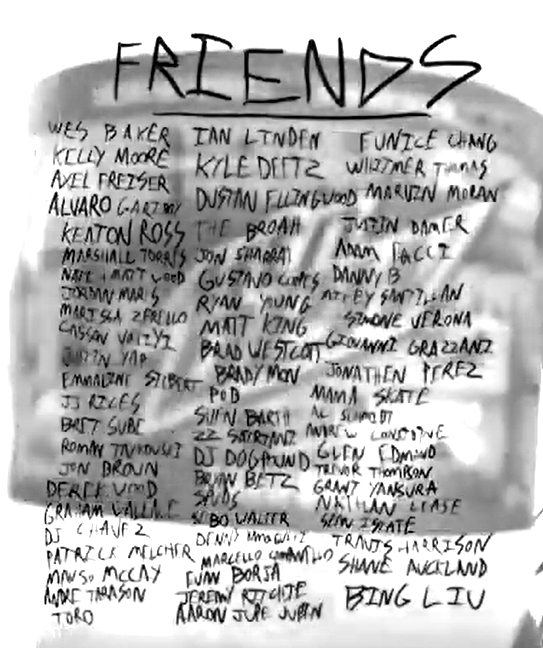 FRIENDS
WES BAKER
KELLY MOORE
AXEL FREISER
ALVARO
KEATON ROSS
MARSHALL TORRES
NATE + MATT WOOD
JORDAN MARIS
MARISSA ZERELLO
CASSON
JUSTIN YAP
EMMALINE
JJ RILES
BRET SUBE
ROMAN
JON BROWN
DEREK WOOD
GRAHAM WALLACE
DJ CHAVEZ
PATRICK MELCHER
MCCAY
ANDRE
TORO
IAN LINDEN
KYLE DEITZ
DUSTAN ELLINGWOOD
THE BROAH
JON SHARRAI
GUSTAVO
RYAN YOUNG
MATT KING
BRAD WESTCOTT
BRADY MON
POD
SVEN BARTH
ZZ
DJ DOGHUND
BRYAN BETZ
SPUDS
SEBO WALTER
DENNY
MARCELLO
EVAN BORJA
JEREMY RITCHIE
AARON JUPE JUBIN
EUNICE CHANG
WHITMER THOMAS
MARVIN MORAN
JUSTIN DAMER
ADAM FACCI
DANNY B
MIKEY SANTILLAN
SIMONE VERONA
GIOVANNI GRAZZANI
JONATHEN PEREZ
MAMA SKATE
AL SCHMIDT
ANDREW
GLEN EDMUND
TREVOR THOMPSON
GRANT YANSURA
NATHAN LEASE
SEAN
TRAVIS HARRISON
SHANE AUCKLAND
BING LIU